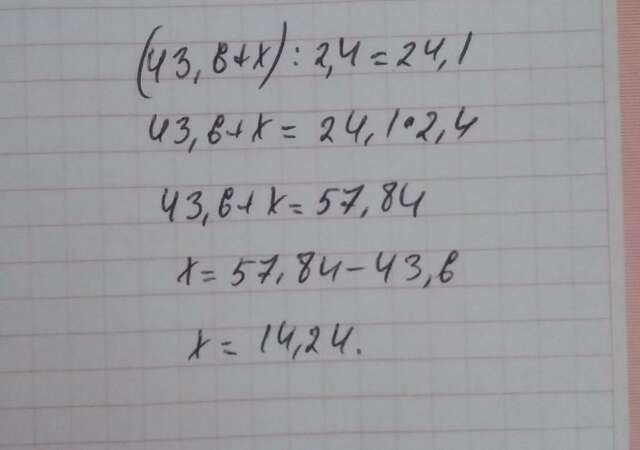 (43,6+x):2,4=24,1
43,6+x=24,1•2,4
43,6+x=57,84
x=57,84-43,6
x=14,24.